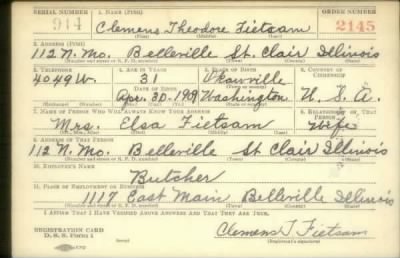 SERIAL NUMBER 1. NAME (Print) ORDER NUMBER
914 Clemens Theodore Fietsam 2145
(First) (Middle) (Last)
2. ADDRESS (Print)
112 N. Mo. Belleville St. Clair Illinois
(Number and street or R. F. D. number) (Town) (County) (State)
3. TELEPHONE 4. AGE IN YEARS 5. PLACE OF BIRTH 6. COUNTRY OF CITIZENSHIP
4049 W. 31 Okawville
DATE OF BIRTH
Apr. 30. 1909 Washington U. S. A.
(Exchange) (Number) (Mo.) (Day) (Yr.) (State or country)
7. NAME OF PERSON WHO WILL ALWAYS KNOW YOUR ADDRESS 8. RELATIONSHIP OF THAT PERSON
Mrs. Elsa Fietsam Wife
(Mr., Mrs., Miss) (First) (Middle) (Last)
9. ADDRESS OF THAT PERSON
112 N. Mo. Belleville St Clair Illinois
(Number and street or R. F. D. number) (Town) (County) (State)
10. EMPLOYER'S NAME
Butcher
11. PLACE OF EMPLOYMENT OR BUSINESS
1117 East Main Belleville Illinois
(Number and street or R. F. D. number) (Town) (County) (State)
I AFFIRM THAT I HAVE VERIFIED ABOVE ANSWERS AND THAT THEY ARE TRUE.
REGISTRATION CARD
D. S. S. Form 1
Clemens T Fietsam
(Registrant's signature)